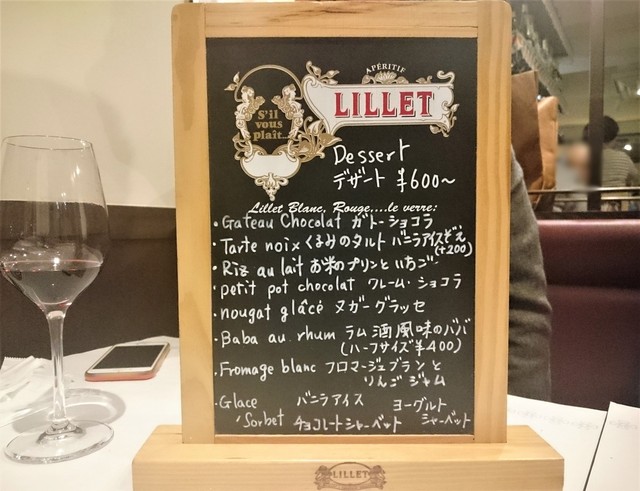 APÉRITIF
LILLET
S'il
vous
plaît...
Dessert
デザート ¥600〜
Lillet Blanc, Rouge....le verre:
・Gateau Chocolat ガトーショコラ
・Tarte noix くるみのタルト バニラアイスぞえ
(+200)
・Riz au lait お米のプリンといちご
・petit pot chocolat クレーム・ショコラ
・nougat glacé ヌガーグラッセ
・Baba au rhum ラム酒風味のババ
(ハーフサイズ¥400)
・Fromage blanc フロマージュブランと
りんごジャム
・Glace バニラアイス ヨーグルト
Sorbet チョコレートシャーベット シャーベット
LILLET